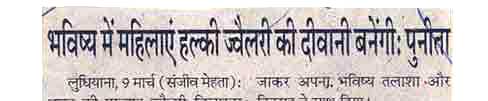 भविष्य में महिलाएं हल्की ज्वैलरी की दीवानी बनेंगी: पुनीता
लुधियाना, 9 मार्च (संजीव मेहता): जाकर अपना भविष्य तलाशा और